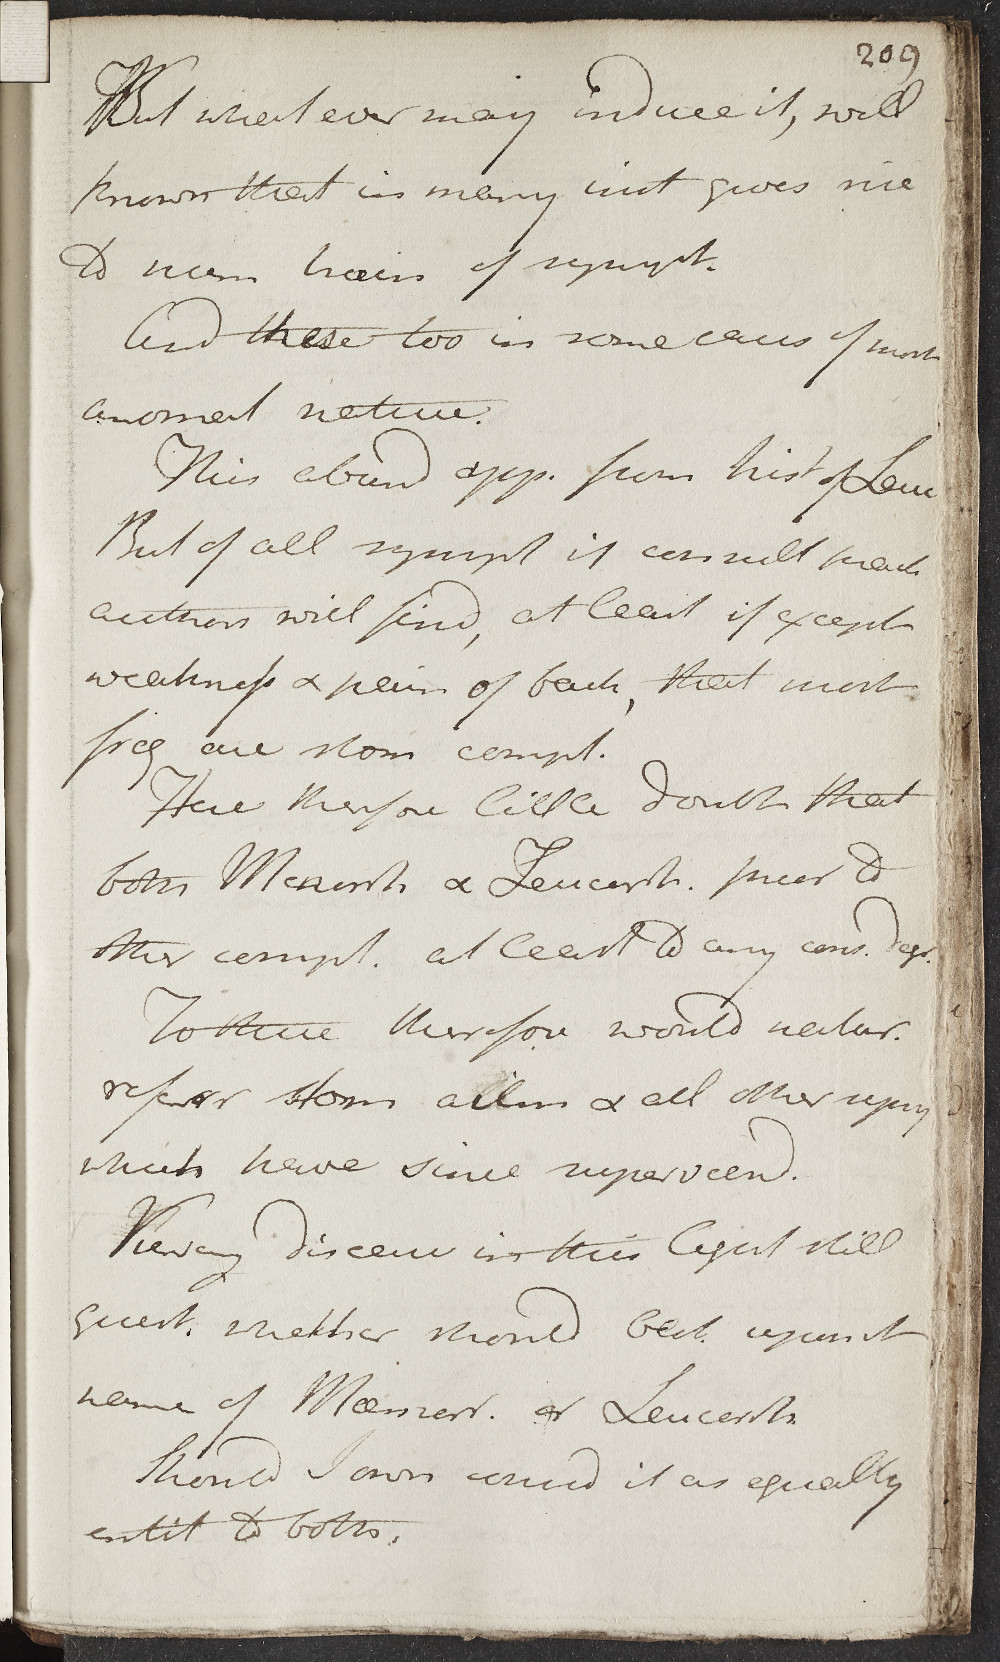 209
But what ever may induce it, well
known that in many inst gives rise
to num trains of sympt.
And these too in some cases of most
anomal nature.
This abund app. from hist of Leuc
But of all sympt if consult pract
authors will find, at least if except
weakness & pain of back, that most
freq are stom compl.
Have therefore little doubt that
both Menorrh & Leucorrh. prior to
other compl. at least to any cons. degr.
To these therefore would natur.
referr stom ailm & all other symp
which have since superveend.
Viewing disease in this light still
quest. whether should be
name of or Leucorrh
Should I own consid it as equally
entit to both.